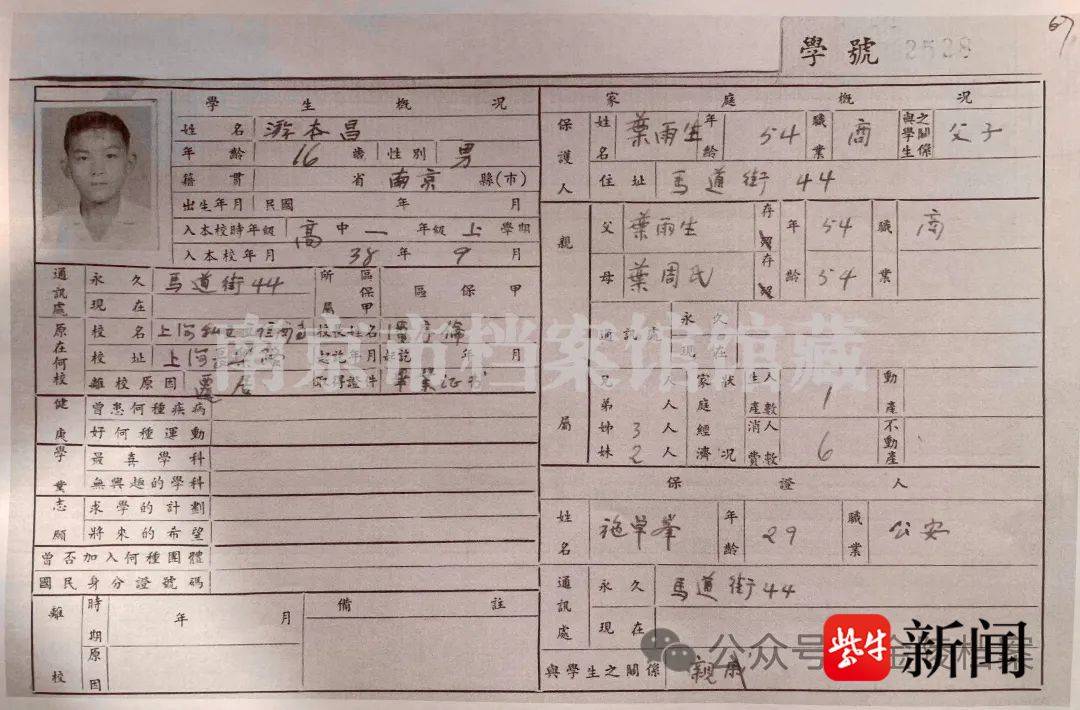 67
學號 2528
學生概況
姓名 游本昌
年齡 16 歲 性別 男
籍貫 省 南京 縣(市)
出生年月 民國 年 月
入本校時年級 高中一年級上學期
入本校年月 38 年 9 月
通訊處 永久 馬道街44 所屬區保甲 區保甲
現在
原在何校 校名 校長姓名
校址 上海 起訖年月 起訖 年 月
離校原因 遷居 取得證件 畢業证书
健康 曾患何種疾病
好何種運動
學業 最喜學科
無興趣的學科
志願 求學的計劃
將來的希望
曾否加入何種團體
國民身分證號碼
離校 時期 年 月 備註
原因
家庭概況
保護人 姓名 葉雨生 年齡 54 職業 商 與學生之關係 父子
住址 馬道街 44
親屬 父 葉雨生 存 年齡 54 職業 商
母 葉周氏 存 54
通訊處 永久
現在
兄 人 家庭經濟狀況 生產人數 1 動產
弟 人
姊 3 人 消費人數 6 不動產
妹 2 人
保證人
姓名 施 年齡 29 職業 公安
通訊處 永久 馬道街44
現在
與學生之關係 親戚
南京市档案馆馆藏
公众号
档案
紫牛新闻